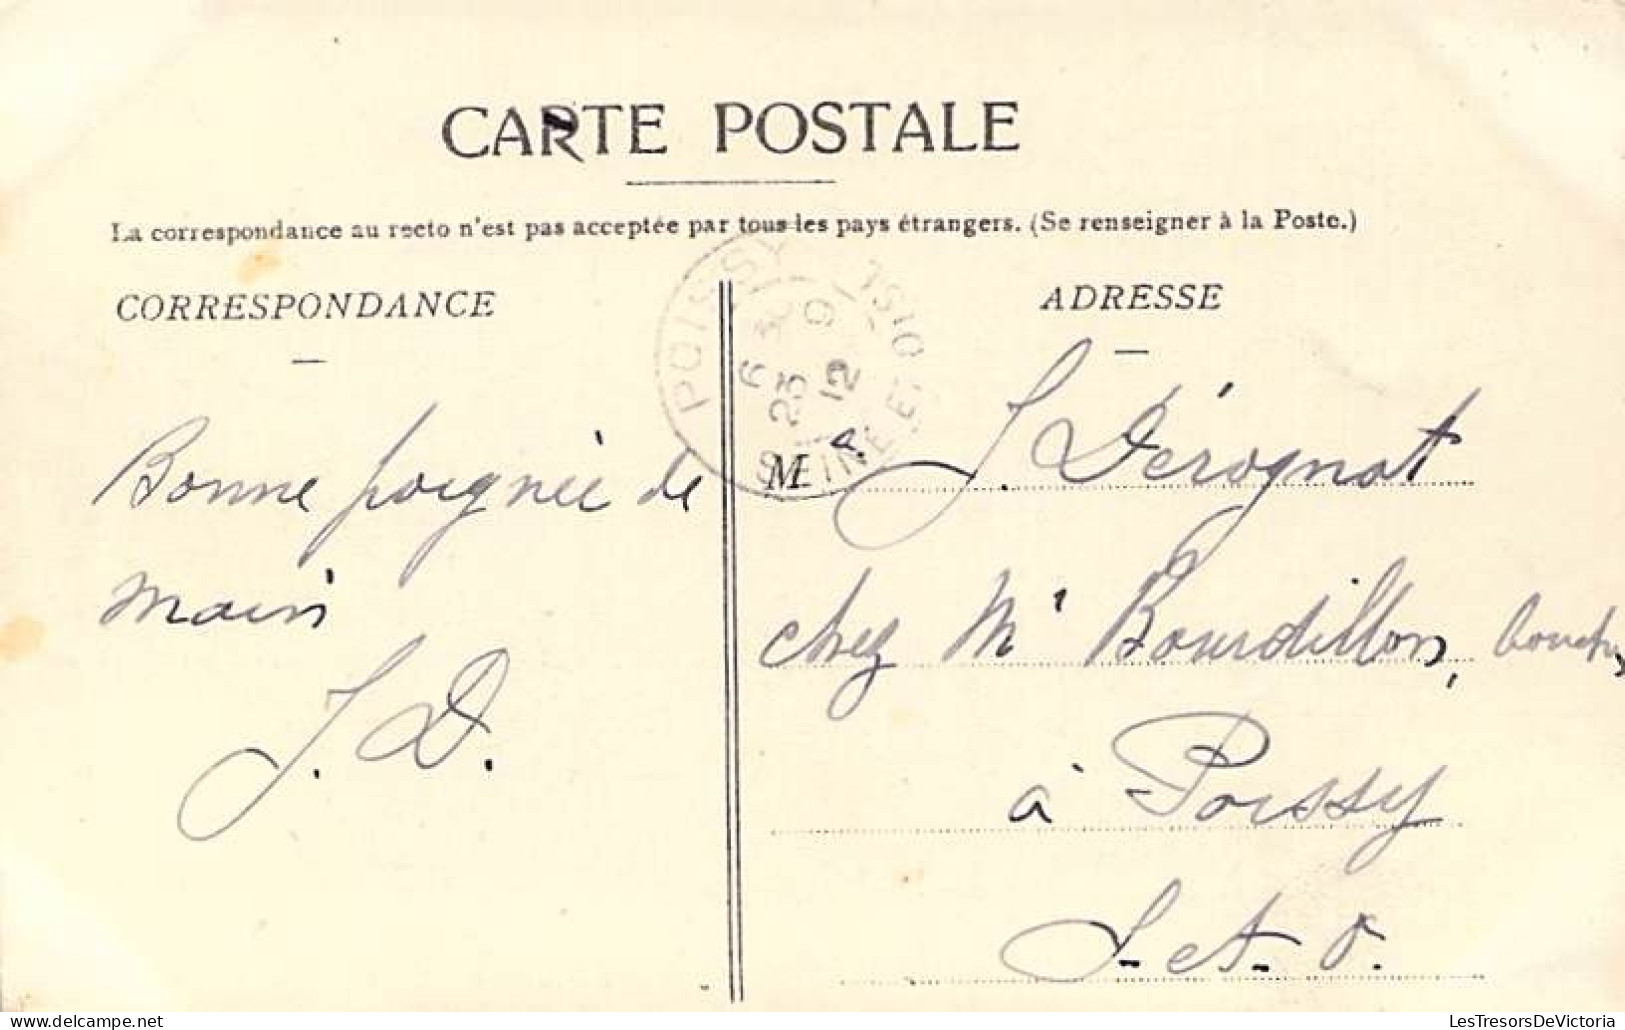 CARTE POSTALE
La correspondance au recto n'est pas acceptée par tous les pays étrangers. (Se renseigner à la Poste.)
CORRESPONDANCE
Bonne poignée de
main
J. D.
ADRESSE
POISSY
6 30
23 9
12
SEINE ET OISE
Mr J. Dérognat
chez Mr Bourdillon,
à Poissy
S.-et-O.
LesTresorsDeVictoria
LesTresorsDeVictoria